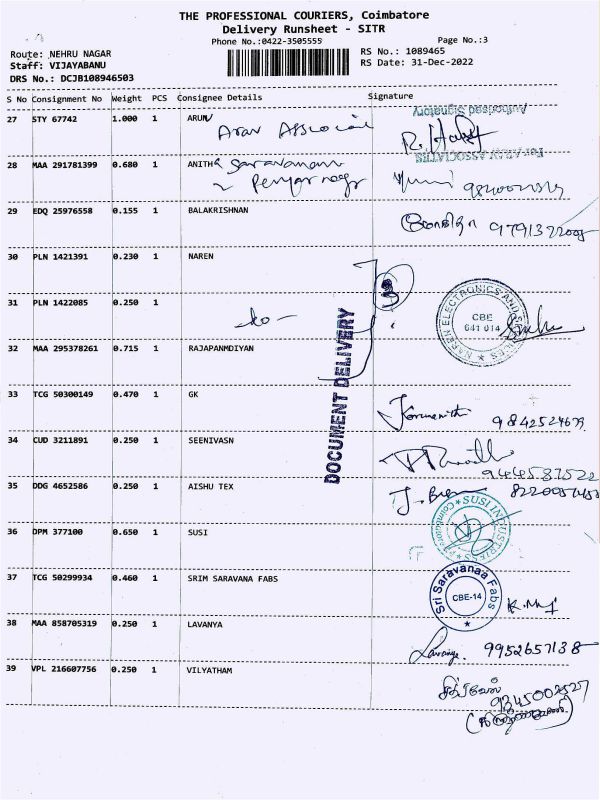 THE PROFESSIONAL COURIERS, Coimbatore
Delivery Runsheet - SITR
Phone No.:0422-3505555 Page No.:3
Route: NEHRU NAGAR RS No.: 1089465
Staff: VIJAYABANU RS Date: 31-Dec-2022
DRS No.: DCJB108946503
S No Consignment No Weight PCS Consignee Details Signature
Authorised Signatory
27 STY 67742 1.000 1 ARUN
For ARAV ASSOCIATES
28 MAA 291781399 0.680 1 ANITHA Saravanan
Periyar nagar
29 EDQ 25976558 0.155 1 BALAKRISHNAN
30 PLN 1421391 0.230 1 NAREN
3
NAREN ELECTRONICS AND
CBE
641 014
31 PLN 1422085 0.250 1
-do-
DOCUMENT DELIVERY
32 MAA 295378261 0.715 1 RAJAPANMDIYAN
33 TCG 50300149 0.470 1 GK
9842524679
34 CUD 3211891 0.250 1 SEENIVASN
944587522
35 DDG 4652586 0.250 1 AISHU TEX
SUSI INDUSTRIES
Coimbatore
36 DPM 377100 0.650 1 SUSI
37 TCG 50299934 0.460 1 SRIM SARAVANA FABS
Sri Saravanaa Fabs
CBE-14
38 MAA 858705319 0.250 1 LAVANYA
Lavanya 9952657138
39 VPL 216607756 0.250 1 VILYATHAM
9345002527